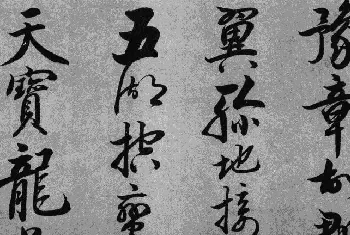 豫章故郡
翼軫地接
五湖控蠻
天寶龍